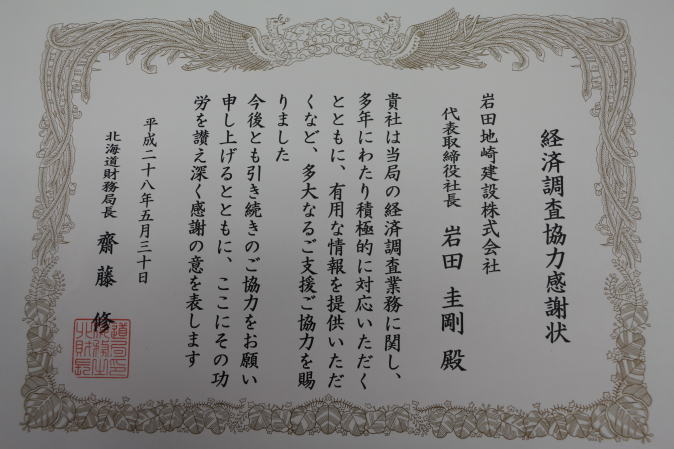 経済調査協力感謝状
岩田地崎建設株式会社
代表取締役社長 岩田 圭剛 殿
貴社は当局の経済調査業務に関し、
多年にわたり積極的に対応いただく
とともに、有用な情報を提供いただ
くなど、多大なるご支援ご協力を賜
りました
今後とも引き続きのご協力をお願い
申し上げるとともに、ここにその功
労を讃え深く感謝の意を表します
平成二十八年五月三十日
北海道財務局長 齋藤 修